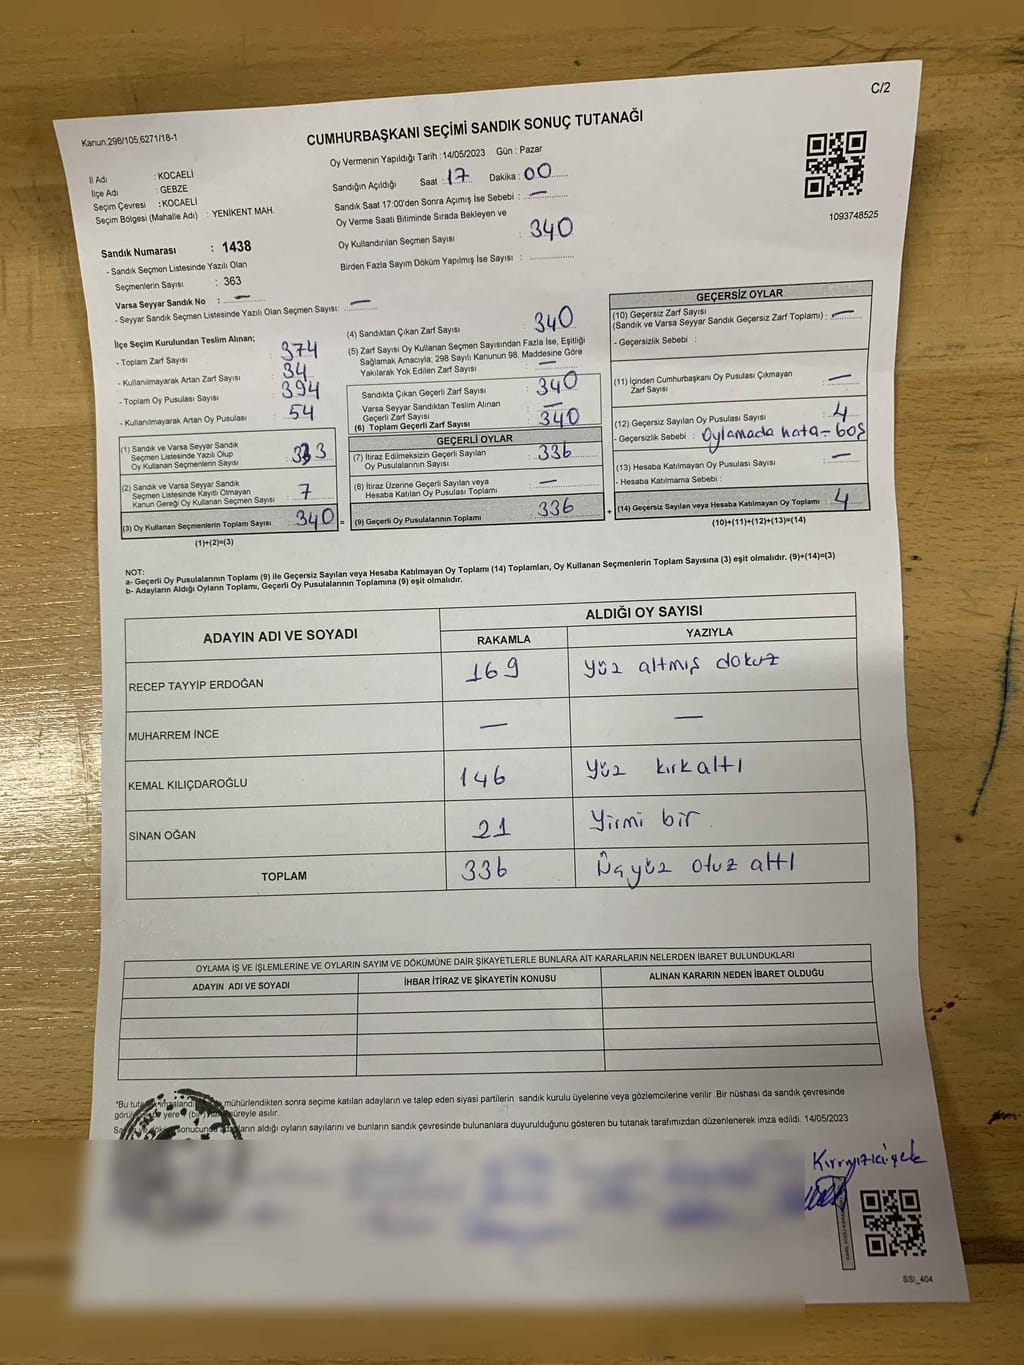 C/2
Kanun.298/105,6271/18-1
CUMHURBAŞKANI SEÇİMİ SANDIK SONUÇ TUTANAĞI
Oy Vermenin Yapıldığı Tarih :14/05/2023 Gün : Pazar
İl Adı : KOCAELİ
İlçe Adı : GEBZE
Seçim Çevresi : KOCAELİ
Seçim Bölgesi (Mahalle Adı) : YENİKENT MAH.
Sandığın Açıldığı Saat : 17 Dakika : 00
Sandık Saat 17:00'den Sonra Açımış İse Sebebi : —
Oy Verme Saati Bitiminde Sırada Bekleyen ve
Oy Kullandırılan Seçmen Sayısı : 340
Birden Fazla Sayım Döküm Yapılmış İse Sayısı : ..............
1093748525
Sandık Numarası : 1438
- Sandık Seçmen Listesinde Yazılı Olan
Seçmenlerin Sayısı : 363
Varsa Seyyar Sandık No : —
- Seyyar Sandık Seçmen Listesinde Yazılı Olan Seçmen Sayısı: —
İlçe Seçim Kurulundan Teslim Alınan;
- Toplam Zarf Sayısı : 374
- Kullanılmayarak Artan Zarf Sayısı : 34
- Toplam Oy Pusulası Sayısı : 394
- Kullanılmayarak Artan Oy Pusulası : 54
(1) Sandık ve Varsa Seyyar Sandık
Seçmen Listesinde Yazılı Olup
Oy Kullanan Seçmenlerin Sayısı : 333
(2) Sandık ve Varsa Seyyar Sandık
Seçmen Listesinde Kayıtlı Olmayan
Kanun Gereği Oy Kullanan Seçmen Sayısı : 7
(3) Oy Kullanan Seçmenlerin Toplam Sayısı : 340 =
(1)+(2)=(3)
(4) Sandıktan Çıkan Zarf Sayısı : 340
(5) Zarf Sayısı Oy Kullanan Seçmen Sayısından Fazla İse, Eşitliği
Sağlamak Amacıyla; 298 Sayılı Kanunun 98. Maddesine Göre
Yakılarak Yok Edilen Zarf Sayısı : —
Sandıkta Çıkan Geçerli Zarf Sayısı : 340
Varsa Seyyar Sandıktan Teslim Alınan
Geçerli Zarf Sayısı : —
(6) Toplam Geçerli Zarf Sayısı : 340
GEÇERLİ OYLAR
(7) İtiraz Edilmeksizin Geçerli Sayılan
Oy Pusulalarının Sayısı : 336
(8) İtiraz Üzerine Geçerli Sayılan veya
Hesaba Katılan Oy Pusulası Toplamı : —
(9) Geçerli Oy Pusulalarının Toplamı : 336 +
GEÇERSİZ OYLAR
(10) Geçersiz Zarf Sayısı
(Sandık ve Varsa Seyyar Sandık Geçersiz Zarf Toplamı) : —
- Geçersizlik Sebebi :
(11) İçinden Cumhurbaşkanı Oy Pusulası Çıkmayan
Zarf Sayısı : —
(12) Geçersiz Sayılan Oy Pusulası Sayısı : 4
- Geçersizlik Sebebi : Oylamada hata - boş
(13) Hesaba Katılmayan Oy Pusulası Sayısı : —
- Hesaba Katılmama Sebebi :
(14) Geçersiz Sayılan veya Hesaba Katılmayan Oy Toplamı : 4
(10)+(11)+(12)+(13)=(14)
NOT:
a- Geçerli Oy Pusulalarının Toplamı (9) ile Geçersiz Sayılan veya Hesaba Katılmayan Oy Toplamı (14) Toplamları, Oy Kullanan Seçmenlerin Toplam Sayısına (3) eşit olmalıdır. (9)+(14)=(3)
b- Adayların Aldığı Oyların Toplamı, Geçerli Oy Pusulalarının Toplamına (9) eşit olmalıdır.
ADAYIN ADI VE SOYADI
ALDIĞI OY SAYISI
RAKAMLA YAZIYLA
RECEP TAYYİP ERDOĞAN 169 yüz altmış dokuz
MUHARREM İNCE — —
KEMAL KILIÇDAROĞLU 146 yüz kırkaltı
SİNAN OĞAN 21 yirmi bir
TOPLAM 336 otuz altı
OYLAMA İŞ VE İŞLEMLERİNE VE OYLARIN SAYIM VE DÖKÜMÜNE DAİR ŞİKAYETLERLE BUNLARA AİT KARARLARIN NELERDEN İBARET BULUNDUKLARI
ADAYIN ADI VE SOYADI İHBAR İTİRAZ VE ŞİKAYETİN KONUSU ALINAN KARARIN NEDEN İBARET OLDUĞU
*Bu mühürlendikten sonra seçime katılan adayların ve talep eden siyasi partilerin sandık kurulu üyelerine veya gözlemcilerine verilir .Bir nüshası da sandık çevresinde
yere (bir) süreyle asılır.
aldığı oyların sayılarını ve bunların sandık çevresinde bulunanlara duyurulduğunu gösteren bu tutanak tarafımızdan düzenlenerek imza edildi. 14/05/2023
SSI_404